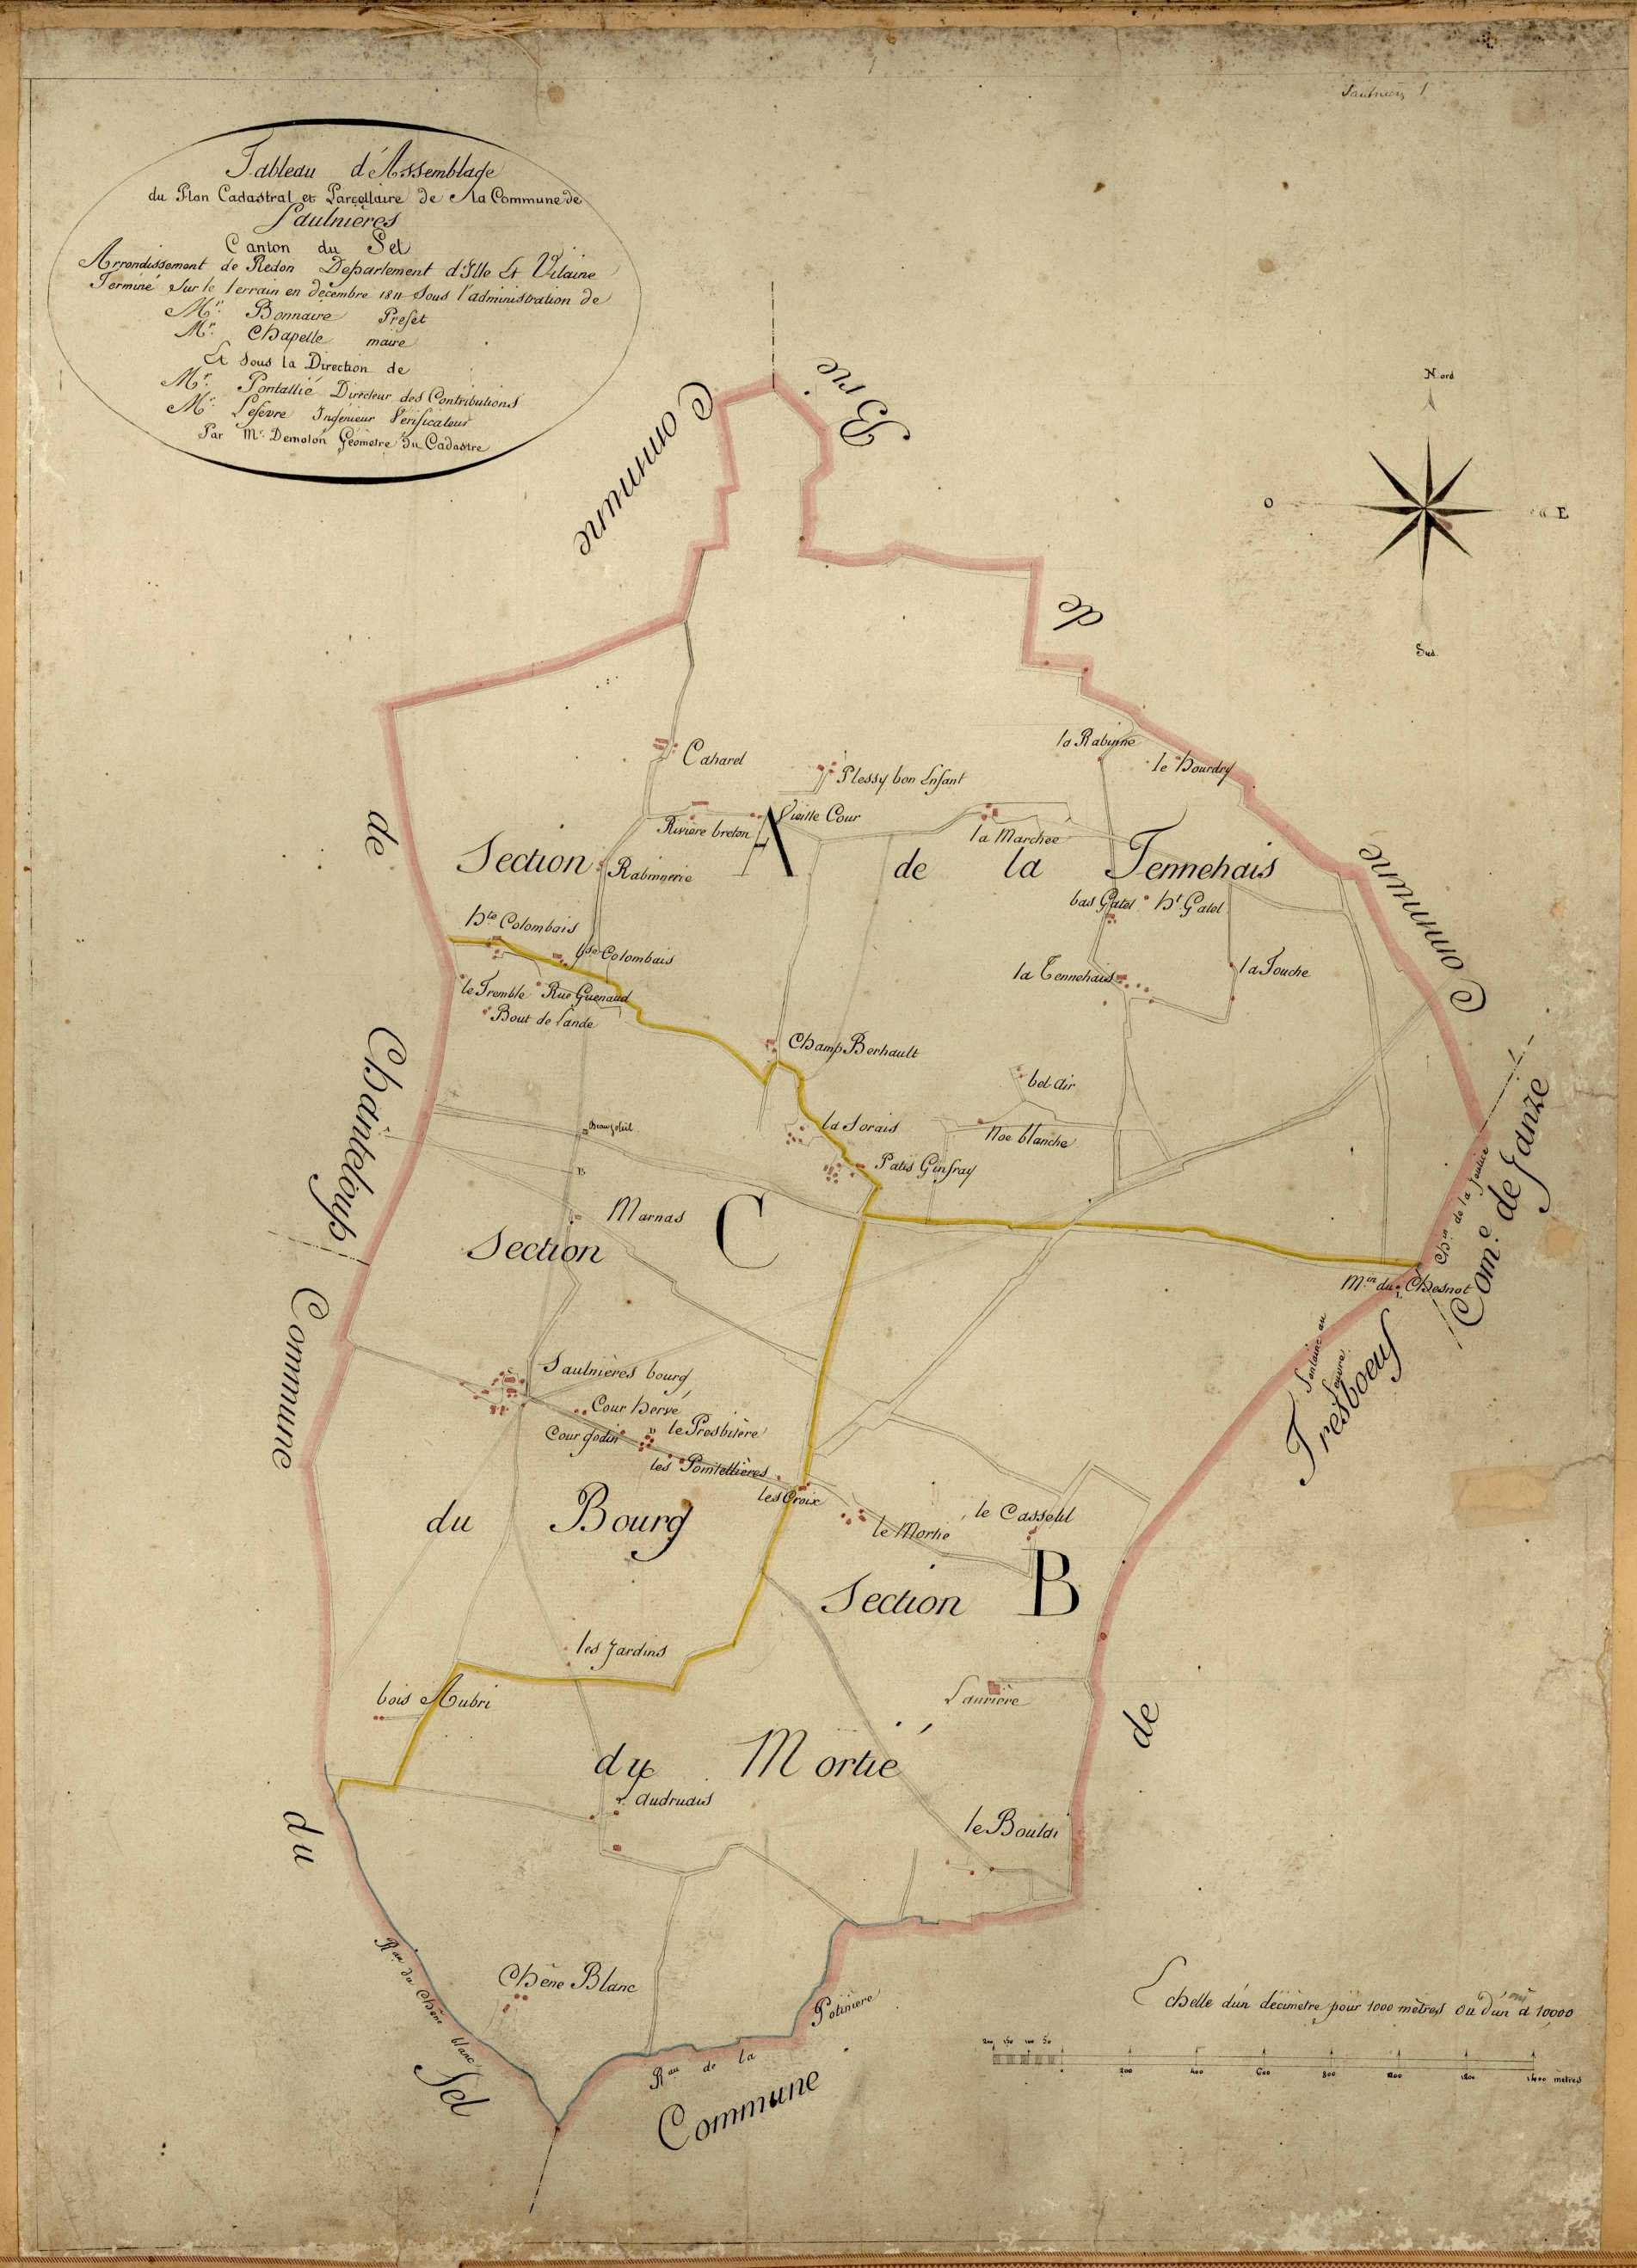 Saulnières 1
Tableau d'Assemblage
du Plan Cadastral et Parcellaire de la Commune de
Saulnières
Canton du Sel
Arrondissement de Redon Departement d'Ille Et Vilaine
Terminé Sur le terrain en decembre 1811 Sous l'administration de
Mr. Bonnaire Prefet
Mr. Chapelle maire
Et Sous la Direction de
Mr. Pontallié Directeur des Contributions
Mr. Lefevre Ingénieur Vérificateur
Par Mr. Demolon Géomètre du Cadastre
Nord
O
E
Sud
Commune
de
Brie
Commune
de
Chanteloup
Commune
du
Sel
Come. de Janzé
Chin de la Justice
Commune
de
Tresboeuf
Caharel
Plessy bon Enfant
la Rabinne
le hourdry
Rivière breton
Vieille Cour
la Marchee
Section A de la Tennehais
Rabingerie
bas Gatel
ht Gatel
hte Colombais
bse Colombais
la Tennehais
la Touche
le Tremble
Rue Guenaud
Bout de Lande
Champ Berhault
bel air
Beausoleil
la Sorais
Noe blanche
Patis Ginfray
Marnas
Section C
Min du Chesnot
Saulnières bourg
Cour hervé
Cour godin
le Presbitère
les Pomtellières
les Croix
le Mortié
le Casselil
du Bourg
Section B
les Jardins
bois Aubri
Laurière
du Mortié
audruais
le Boulai
Rau du Chêne blanc
Chêne Blanc
Rau de la Potinière
Echelle d'un decimètre pour 1000 mètres ou d'un à 10000
200 150 100 50 0 200 400 600 800 1000 1200 1400 mètres